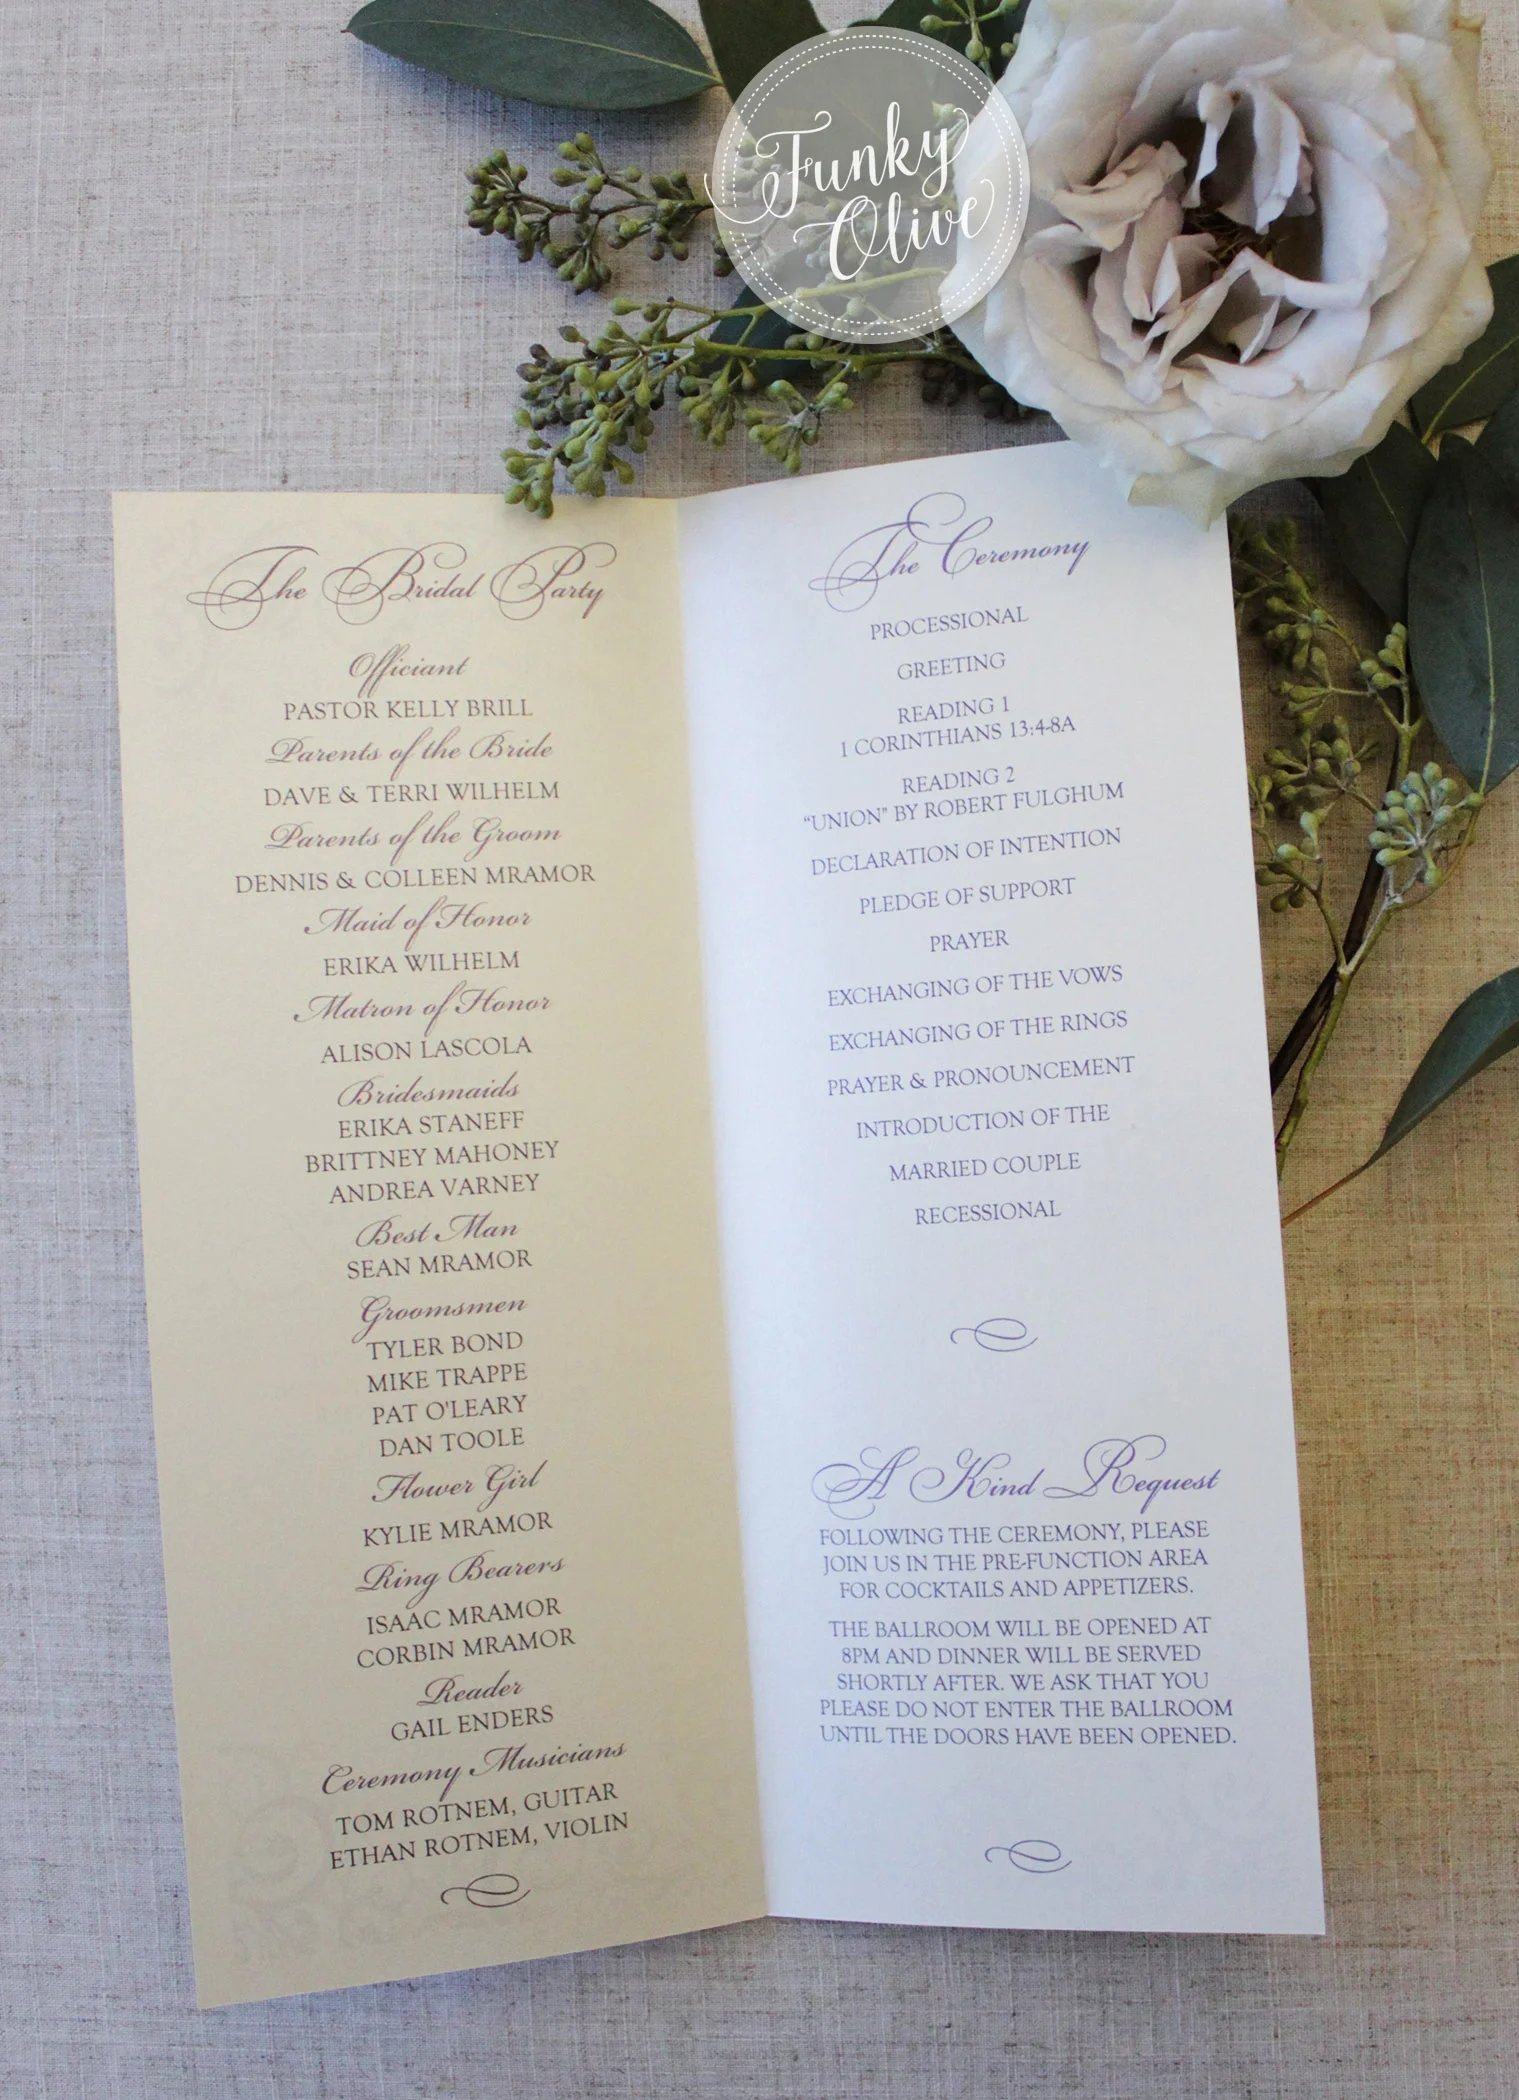 Funky
Olive
The Bridal Party
Officiant
PASTOR KELLY BRILL
Parents of the Bride
DAVE & TERRI WILHELM
Parents of the Groom
DENNIS & COLLEEN MRAMOR
Maid of Honor
ERIKA WILHELM
Matron of Honor
ALISON LASCOLA
Bridesmaids
ERIKA STANEFF
BRITTNEY MAHONEY
ANDREA VARNEY
Best Man
SEAN MRAMOR
Groomsmen
TYLER BOND
MIKE TRAPPE
PAT O'LEARY
DAN TOOLE
Flower Girl
KYLIE MRAMOR
Ring Bearers
ISAAC MRAMOR
CORBIN MRAMOR
Reader
GAIL ENDERS
Ceremony Musicians
TOM ROTNEM, GUITAR
ETHAN ROTNEM, VIOLIN
The Ceremony
PROCESSIONAL
GREETING
READING 1
1 CORINTHIANS 13:4-8A
READING 2
“UNION” BY ROBERT FULGHUM
DECLARATION OF INTENTION
PLEDGE OF SUPPORT
PRAYER
EXCHANGING OF THE VOWS
EXCHANGING OF THE RINGS
PRAYER & PRONOUNCEMENT
INTRODUCTION OF THE
MARRIED COUPLE
RECESSIONAL
A Kind Request
FOLLOWING THE CEREMONY, PLEASE
JOIN US IN THE PRE-FUNCTION AREA
FOR COCKTAILS AND APPETIZERS.
THE BALLROOM WILL BE OPENED AT
8PM AND DINNER WILL BE SERVED
SHORTLY AFTER. WE ASK THAT YOU
PLEASE DO NOT ENTER THE BALLROOM
UNTIL THE DOORS HAVE BEEN OPENED.